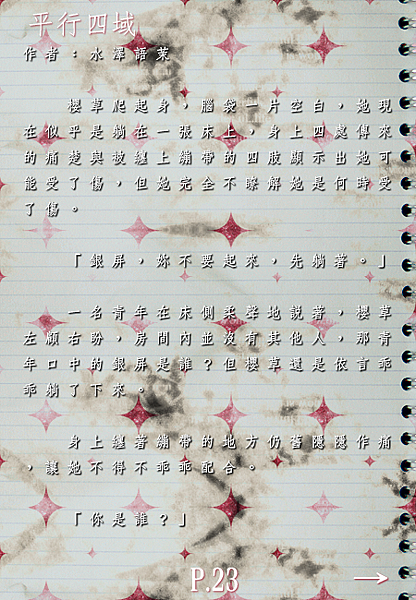 平行四域
作者：水澤語茉
櫻草爬起身，腦袋一片空白，她現
在似乎是躺在一張床上，身上四處傳來
的痛楚與被纏上繃帶的四肢顯示出她可
能受了傷，但她完全不瞭解她是何時受
了傷。
「銀屏，妳不要起來，先躺著。」
一名青年在床側柔聲地說著，櫻草
左顧右盼，房間內並沒有其他人，那青
年口中的銀屏是誰？但櫻草還是依言乖
乖躺了下來。
身上纏著繃帶的地方仍舊隱隱作痛
，讓她不得不乖乖配合。
「你是誰？」
P.23